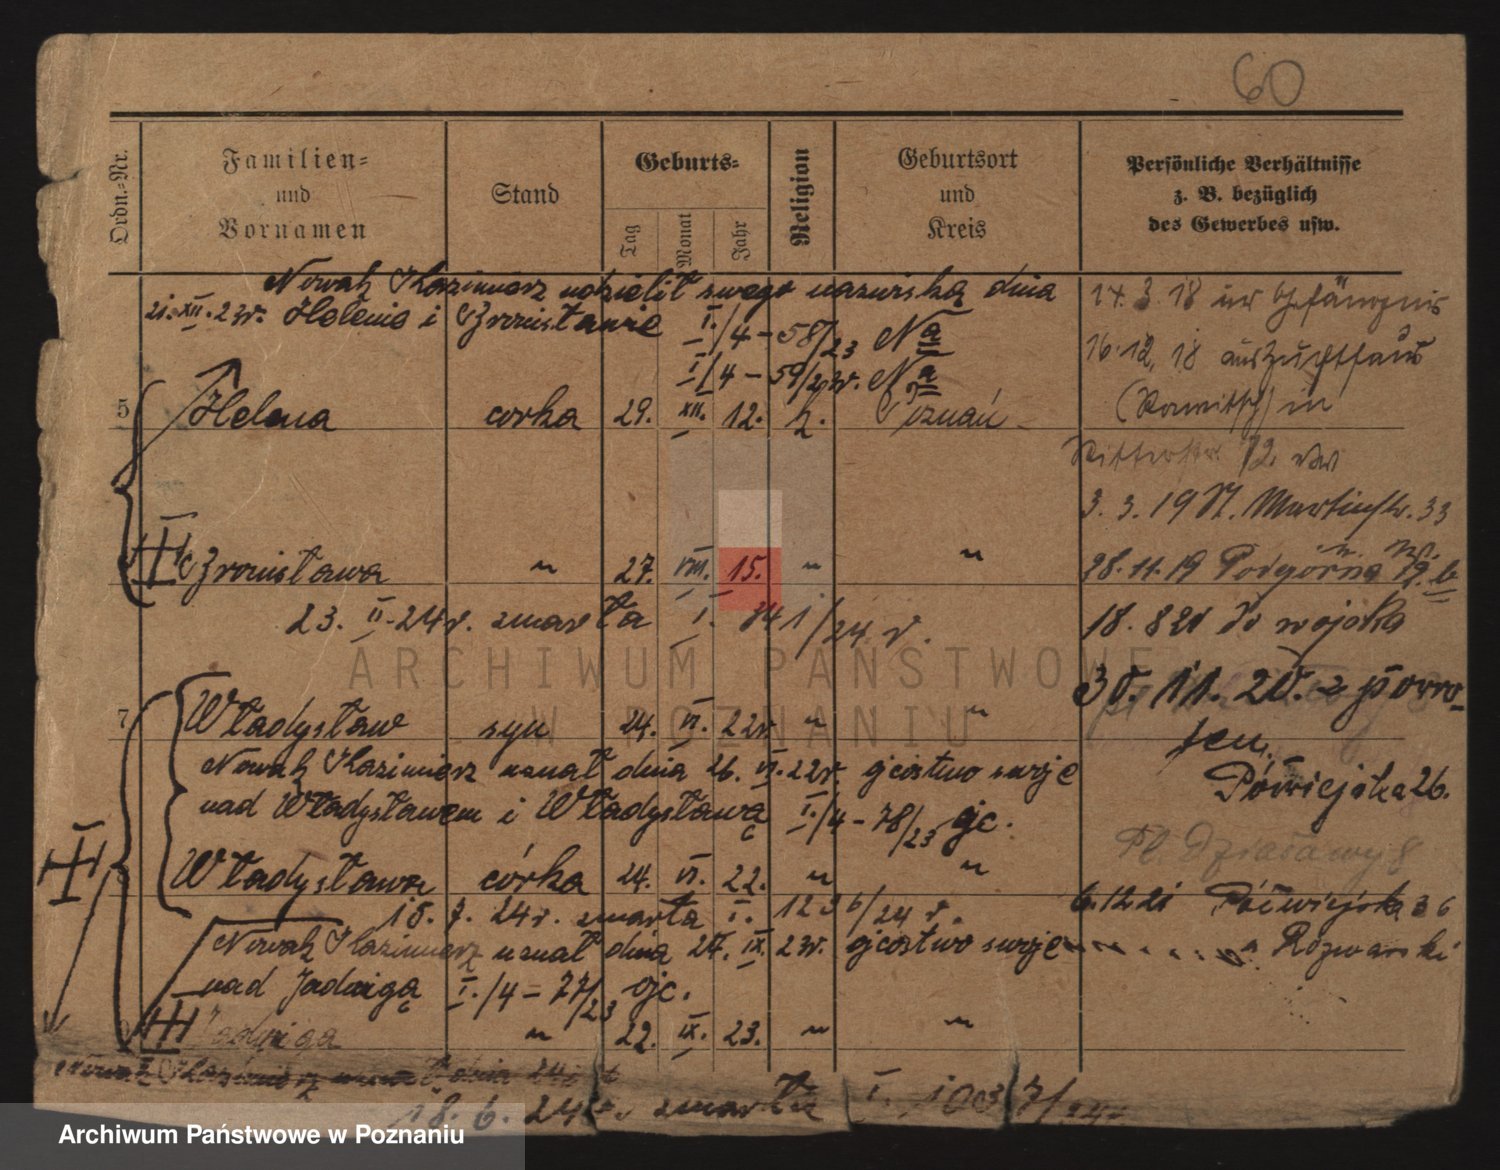 60
Ordn.=Nr.
Familien=
und
Vornamen
Stand
Geburts=
Tag
Monat
Jahr
Religion
Geburtsort
und
Kreis
Persönliche Verhältnisse
z. B. bezüglich
des Gewerbes usw.
Nowak Kazimierz udzielił swego nazwiska dnia
21. XII. 23r. Helenie i Bronisławie I./4 – 58/23 Na
I/4 – 59/23r. Na
5 Helena córka 29. XII. 12. k. Poznań
Bronisława " 27. VIII. 15. " "
23. II. 24r. zmarła I. 341/24 r.
7 Władysław syn 24. VI. 22r. " "
Nowak Kazimierz uznał dnia 26. VI. 22r. ojcostwo swoje
nad Władysławem i Władysławą I./4 – 78/23 ojc.
Władysława córka 24. VI. 22. " "
18. 7. 24r. zmarła I. 1236/24 r.
Nowak Kazimierz uznał dnia 27. IX. 23r. ojcostwo swoje
nad Jadwigą I./4 – 77/23 ojc.
Jadwiga " 22. IX. 23. " "
Nowak Kazimierz uznał dnia
18. 6. 24r. zmarła I. 1003 7/24
17. 3. 18 im Gefängnis
16. 12. 18 aus Zuchthaus
(Rawitsch) in
Ritterstr. 12
3. 3. 19 St. Martinstr. 33
28. 11. 19 Podgórna 12. b
18. 8 20 do wojska
30. 11. 20. z powro-
tem
Półwiejska 26.
Pl. Działowy 8
6. 12 21 Półwiejska 36
Rozwarski
ARCHIWUM PAŃSTWOWE
W POZNANIU
Archiwum Państwowe w Poznaniu